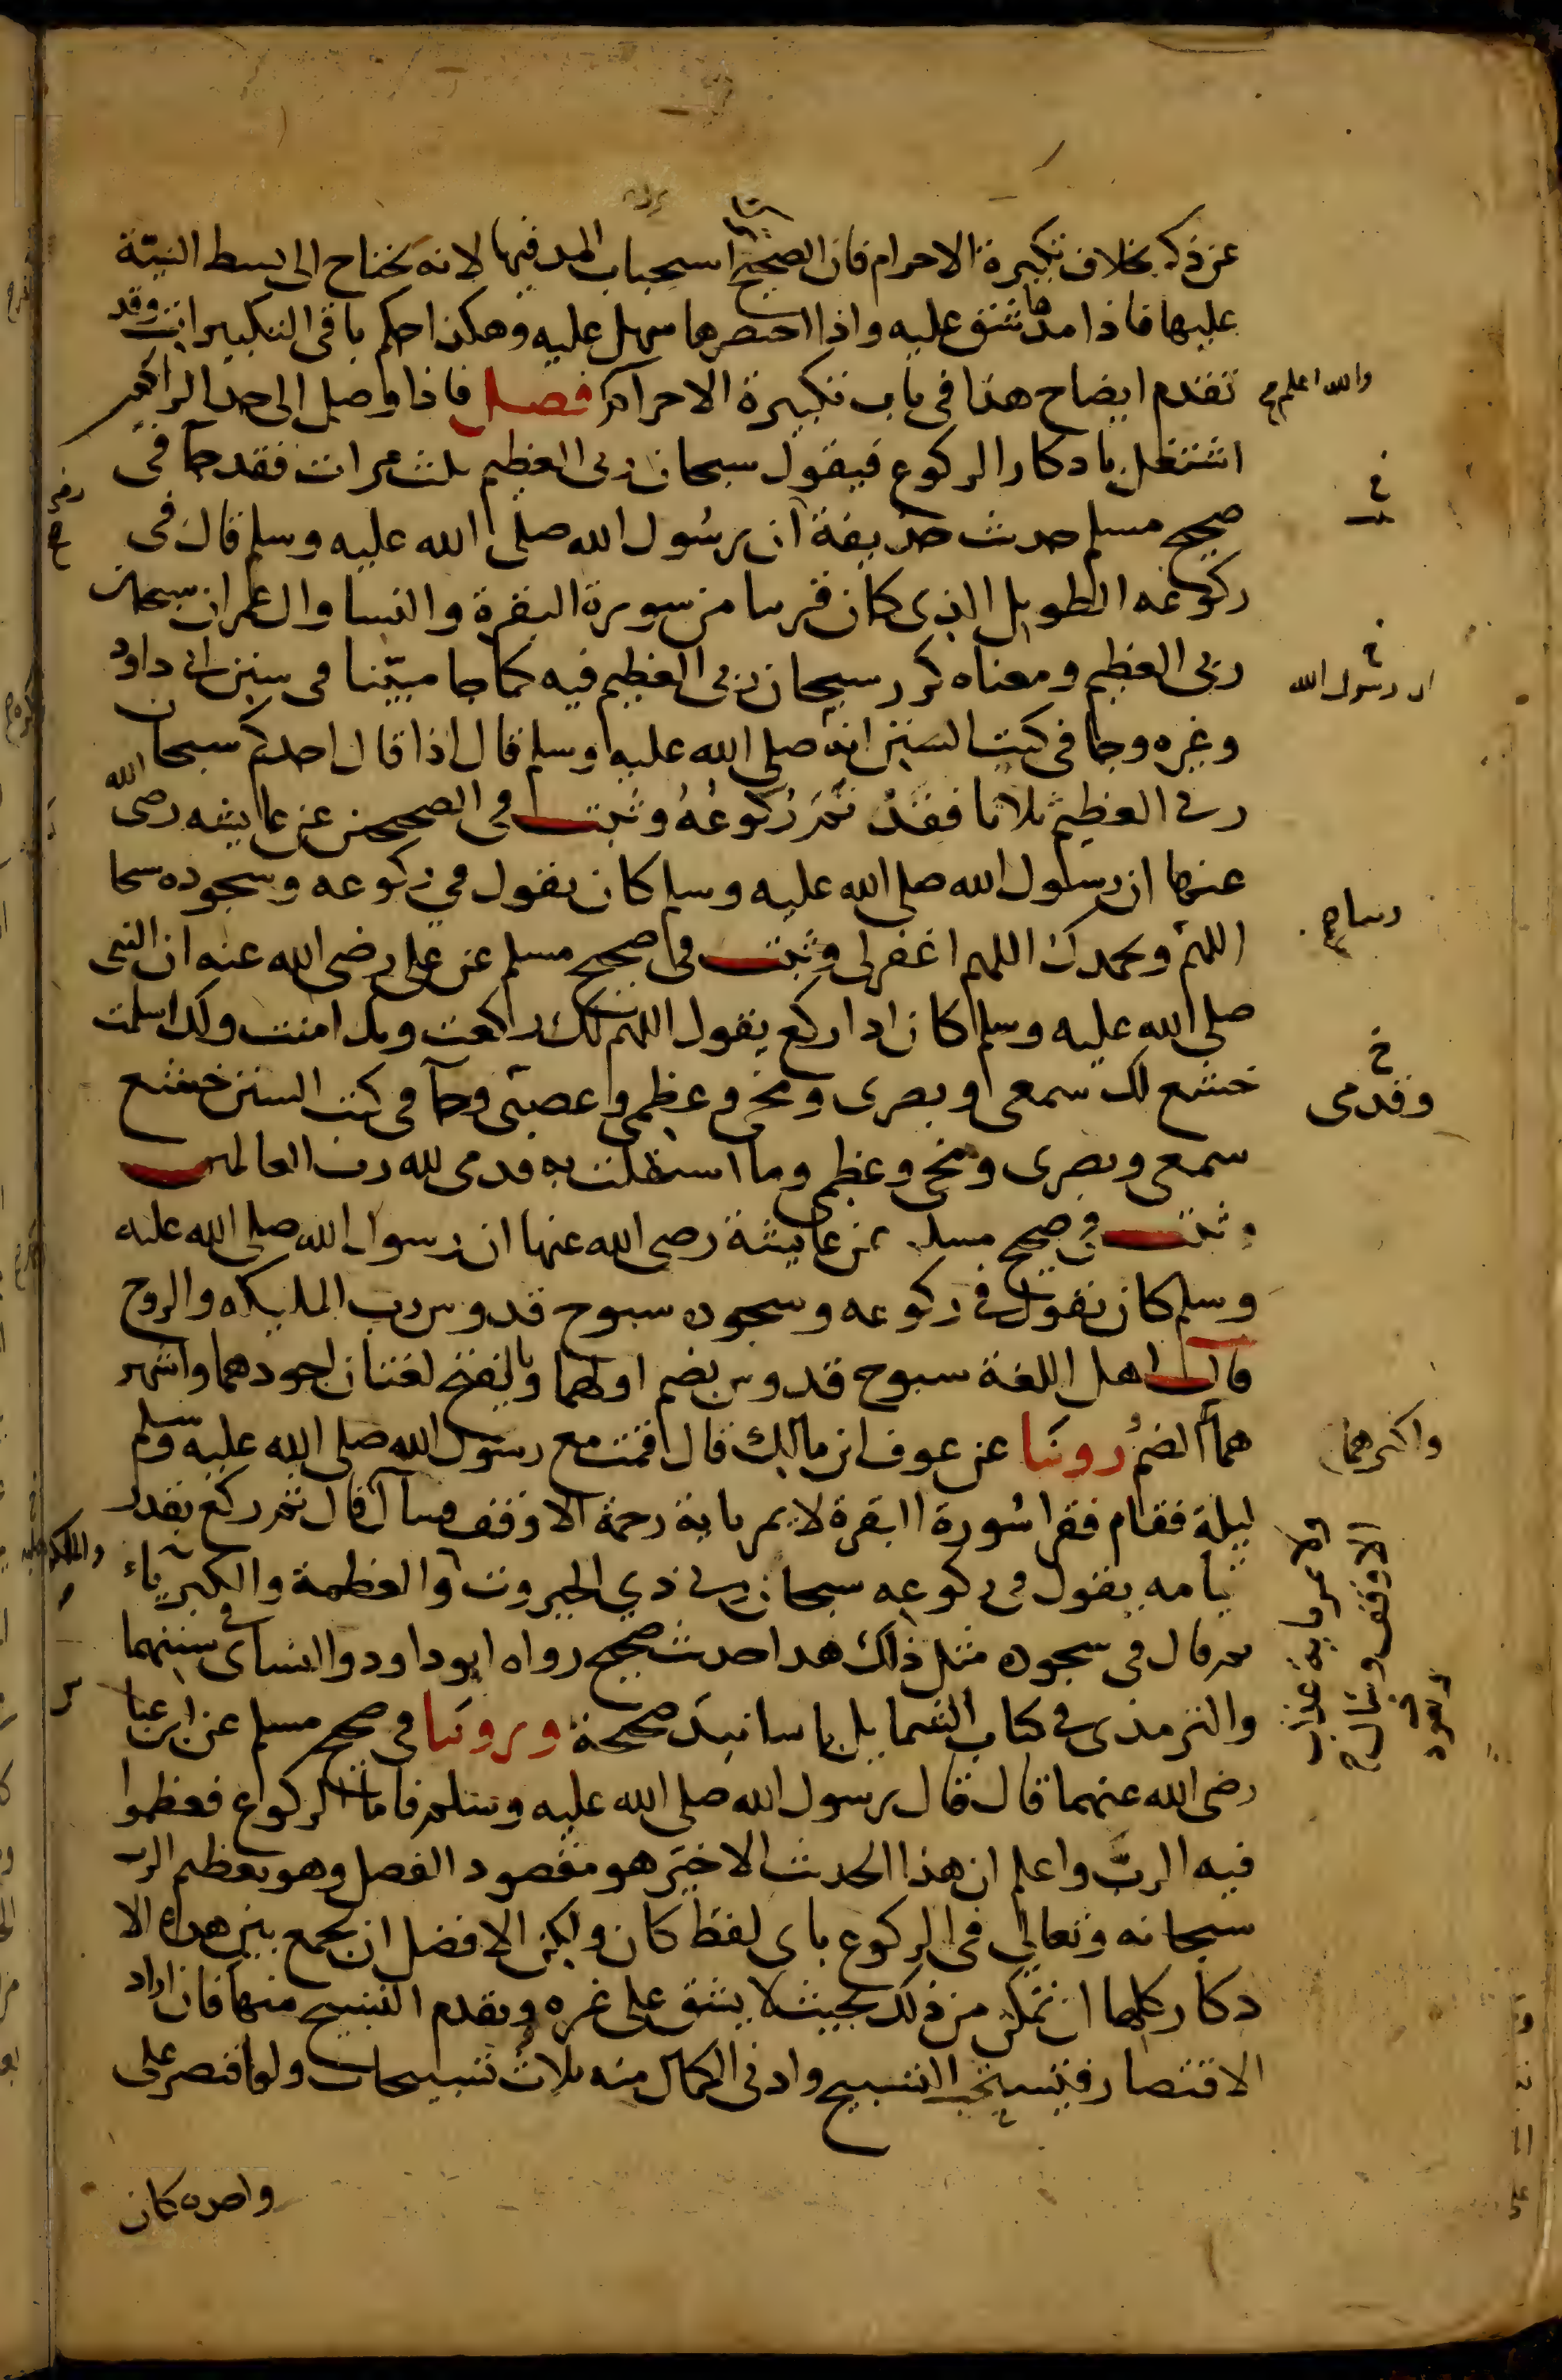 عن ذكر بخلاف تكبيرة الاحرام فان الصحيح استحباب المد فيها لانه يحتاج الى بسط النيّة
عليها فاذا مدها شق عليه واذا اختصرها سهل عليه وهكذا حكم باقى التكبيرات وقد
تقدم ايضاح هذا فى باب تكبيرة الاحرام فصل فاذا وصل الى حد الراكعين
والله اعلم صح
اشتغل باذكار الركوع فيقول سبحان ربى العظيم ثلث مرات فقد جآ فى
صحيح مسلم حديث حذيفة ان رسول الله صلى الله عليه وسلم قال فى
ركوعه الطويل الذى كان قريبا من سورة البقرة والنسا وال عمران سبحان
ربى العظيم ومعناه كرر سبحان ربى العظيم فيه كما جا مبيّنا فى سنن ابى داود
ان رسول الله
وغيره وجا فى كتب السنن انه صلى الله عليه وسلم قال اذا قال احدكم سبحان
ربى العظيم ثلاثا فقد تمّ ركوعُهُ وثبت فى الصحيحين عن عايشه رضى الله
عنها ان رسول الله صلى الله عليه وسلم كان يقول فى ركوعه وسجوده سبحا
ربنا صح
اللهم وبحمدك اللهم اغفر لى وثبت فى صحيح مسلم عن على رضى الله عنه ان النبى
صلى الله عليه وسلم كان اذا ركع يقول اللهم لك ركعت وبك امنت ولك اسلمت
خشع لك سمعى وبصرى ومخى وعظمى وعصبى وجآ فى كتب السنن خشع
وقدمى
سمعى وبصرى ومخى وعظمى وما استقلت به قدمى لله رب العالمين
وثبت فى صحيح مسلم عن عايشة رضى الله عنها ان رسول الله صلى الله عليه
وسلم كان يقول فى ركوعه وسجوده سبوح قدوس رب المليكه والروح
قال اهل اللغة سبوح قدوس بضم اولهما وبالفتح لغتان اجودهما واشهر
هما الضمُ روينا عن عوف ابن مالك قال قمت مع رسول الله صلى الله عليه وسلم
واكثرهما
ليلة فقام فقرا سُورة البقرة لا يمر باية رحمة الا وقف وسال قال ثم ركع بقدر
ولا يمر باية عذاب
الا وقف
وتعوذ
قيامه يقول فى ركوعه سبحان ذي الجبروت والعظمة والكبرياء
والملكوت
ثم قال فى سجوده مثل ذلك هذا حديث صحيح رواه ابو داود والنساى فى سننهما
والترمذى فى كتاب الشمايل باسانيد صحيحة وروينا فى صحيح مسلم عن ابن عبا
رضى الله عنهما قال قال رسول الله صلى الله عليه وسلم فاما الركوع فعظموا
فيه الربَّ واعلم ان هذا الحديث الاخير هو مقصود الفصل وهو تعظيم الرب
سبحانه وتعالى فى الركوع باى لفظ كان ولكن الافضل ان يجمع بين هذه الا
ذكار كلها ان تمكن من ذلك بحيث لا يشق على غيره ويقدم التسبيح منها فان اراد
الاقتصار فيستحب التسبيح وادنى الكمال منه ثلاث تسبيحات ولو اقتصر على
واحده كان